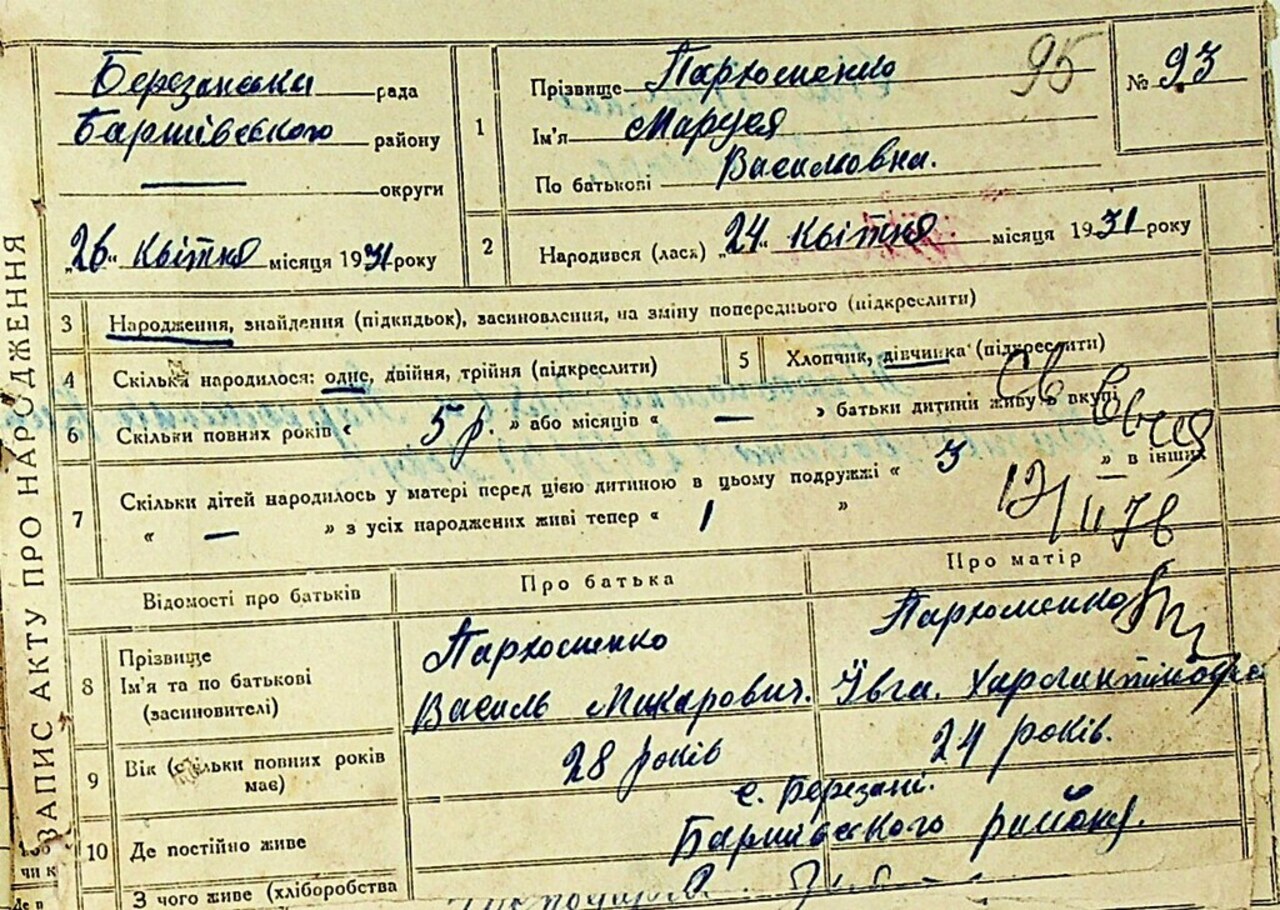 ЗАПИС АКТУ ПРО НАРОДЖЕННЯ
Березанська рада
Баришівського району
— округи
„26“ квітня місяця 1931 року
1
Прізвище Пархоменко
Ім'я Маруся
По батькові Василовна.
95
№ 93
2
Народився (лась) „24“ квітня місяця 1931 року
3 Народження, знайдення (підкидьок), засиновлення, на зміну попереднього (підкреслити)
4 Скільки народилося: одне, двійня, трійня (підкреслити)
5 Хлопчик, дівчинка (підкреслити)
6 Скільки повних років « 5 р. » або місяців « — » батьки дитини живуть вкупі
7 Скільки дітей народилось у матері перед цією дитиною в цьому подружжі « 3 » в інших
« — » з усіх народжених живі тепер « 1 »
Св
12/II 78
Відомості про батьків
Про батька
Про матір
8
Прізвище
Ім'я та по батькові
(засиновителі)
Пархоменко
Василь Макарович.
Пархоменко
Ївга. Харлантіновна
9 Вік (скільки повних років
має)
28 років
24 років.
10 Де постійно живе
с. Березані.
Баришівського району.
З чого живе (хліборобства